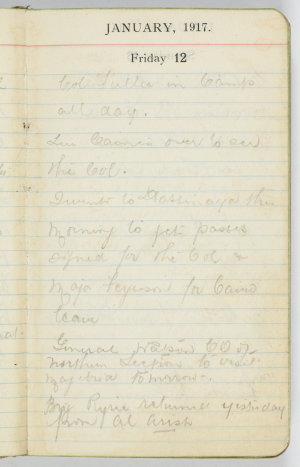 JANUARY, 1917.
Friday 12
Col Fuller in Camp
all day.
over to see
the Col.
I went to this
morning to get passes
signed for the Col &
Maj Ferguson for Cairo
leave
General Watson CO of
Northern Section to visit
tomorrow.
Brig Ryrie returned yesterday
from Al Arish